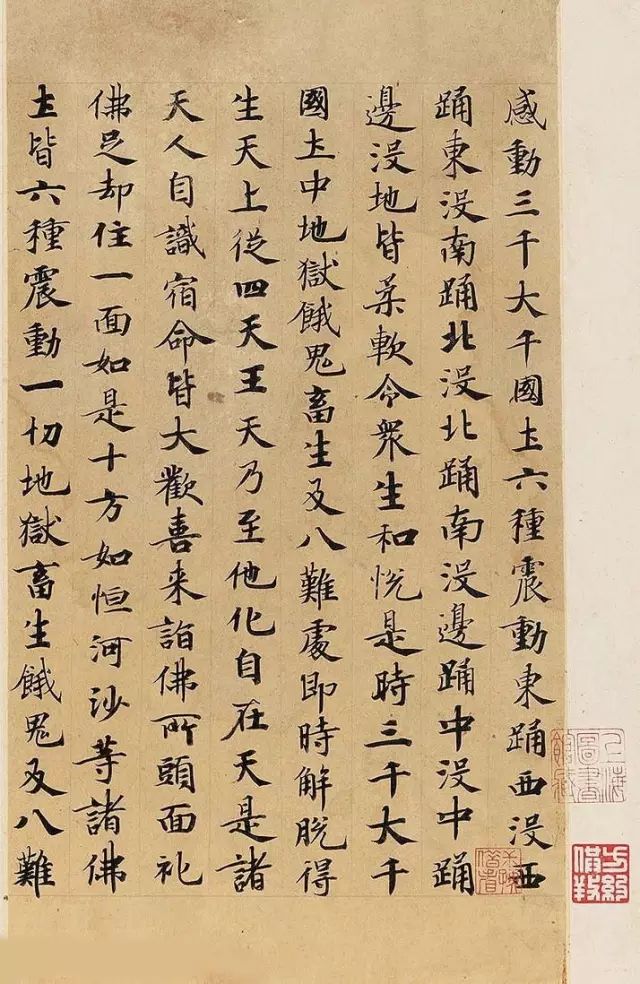 感動三千大千國土六種震動東踊西没西
踊東没南踊北没北踊南没邊踊中没中踊
邊没地皆柔軟令衆生和悦是時三千大千
國土中地獄餓鬼畜生及八難處即時解脱得
生天上從四天王天乃至他化自在天是諸
天人自識宿命皆大歡喜来詣佛所頭面礼
佛足却住一面如是十方如恒河沙等諸佛
土皆六種震動一切地獄畜生餓鬼及八難
上海
圖書
館藏